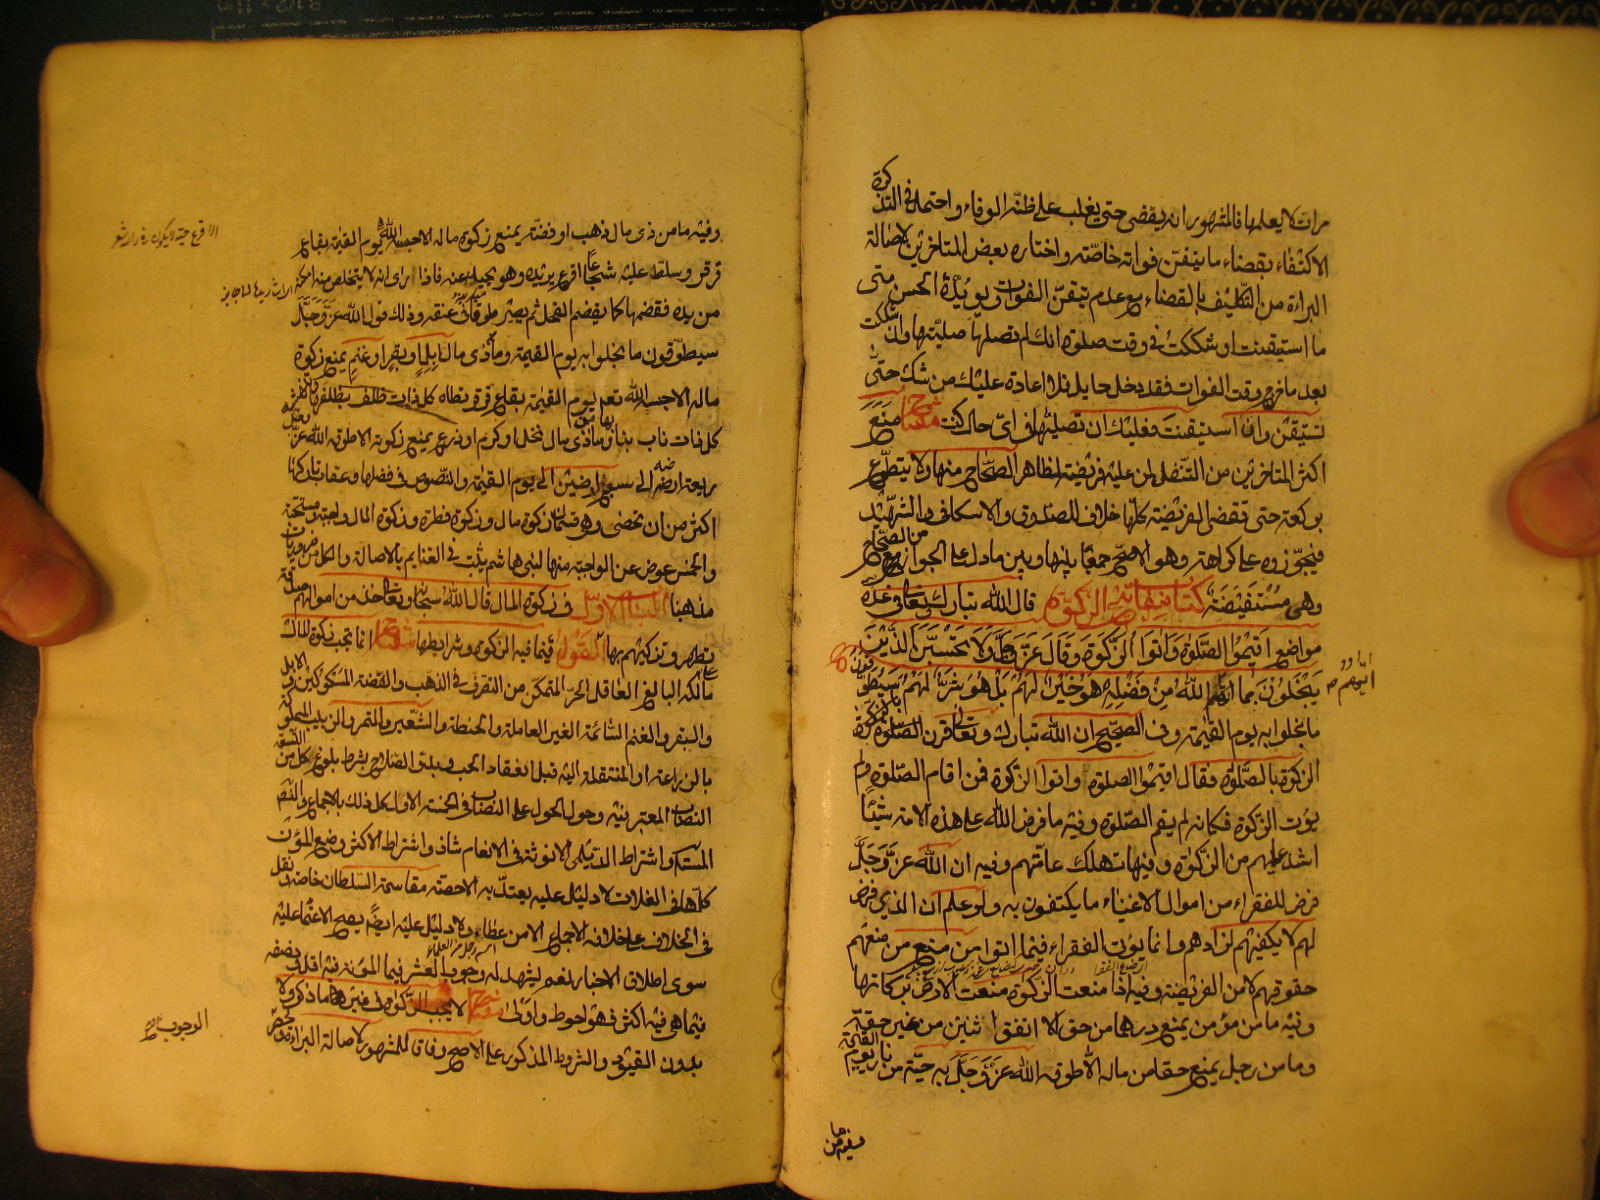 مرات لا يعلمها فالمشهور انه يقضى حتى يغلب على ظنه الوفاء واحتمل فى التذكرة
الاكتفاء بقضاء ما تيقن فواته خاصة واختاره بعض المتاخرين لاصالة
البراءة من التكليف بالقضاء مع عدم تيقن الفوات ويؤيده الحسن متى
ما استيقنت او شككت فى وقت صلوة انك لم تصلها صليتها وان شككت
بعد ما خرج وقت الفوات فقد دخل حايل فلا اعادة عليك من شك حتى
تستيقن وان استيقنت فعليك ان تصليها فى اى حال كنت مفتاح منع
اكثر المتاخرين من التنفل لمن عليه فريضة لظاهر الصحاح منها ولا يتطوع
بركعة حتى يقضى الفريضة كلها خلافا للصدوق والاسكافى والشهيد
فجوزوه على كراهة وهو الاصح جمعا بينها وبين ما دل على الجواز من الصحاح
وهى مستفيضة كتاب مفاتيح الزكوة قال الله تبارك وتعالى فى عدة
مواضع اقيموا الصلوة واتوا الزكوة وقال عز وجل ولا يحسبن الذين
يبخلون بما اتيهم الله من فضله هو خيرا لهم بل هو شر لهم سيطوقون
ما بخلوا به يوم القيمة وفى الصحيح ان الله تبارك وتعالى قرن
الزكوة بالصلوة فقال اقيموا الصلوة واتوا الزكوة فمن اقام الصلوة ولم
يؤت الزكوة فكانه لم يقم الصلوة وفيه ما فرض الله على هذه الامة شيئا
اشد عليهم من الزكوة وفيها تهلك عامتهم وفيه ان الله عز وجل
فرض للفقراء من اموال الاغنياء ما يكتفون به ولو علم ان الذى فرض
لهم لا يكفيهم لزادهم وانما يؤتى الفقراء فيما اتوا من منع من منعهم
حقوقهم لا من الفريضة وفيه اذا منعت الزكوة منعت الارض بركاتها
وفيه ما من مؤمن يمنع درهما من حق الا انفق اثنين من غير حقه
وما من رجل يمنع حقا من ماله الا طوقه الله عز وجل به حية من نار يوم القيمة
وفيه ما من ذى مال ذهب او فضة يمنع زكوة ماله الا حبسه الله يوم القيمة بقاع
قرقر وسلط عليه شجاعا اقرع يريده وهو يحيد عنه فاذا راى انه لا يتخلص منه امكنه
من يده فقضمها كما يقضم الفحل ثم يصير طوقا فى عنقه وذلك قول الله عز وجل
سيطوقون ما بخلوا به يوم القيمة وما ذى مال ابل او بقر او غنم يمنع زكوة
ماله الا حبسه الله تعالى يوم القيمة بقاع قرقر تطاه كل ذات ظلف بظلفها
كل ذات ناب بنابها وما من ذى مال نخل او كرم او زرع يمنع زكوته الا طوقه الله عز وجل
ريعة ارضه الى سبع ارضين الى يوم القيمة والنصوص فى فضلها وعقاب تاركها
اكثر من ان تحصى وهى قسمان زكوة مال وزكوة فطرة وزكوة المال واجبة ومستحبة
والخمس عوض عن الواجبة منها لبنى هاشم يثبت فى الغنايم بالاصالة والكل من ضروريات
مذهبنا الباب الاول فى زكوة المال قال الله سبحانه وتعالى خذ من اموالهم صدقة
تطهرهم وتزكيهم بها القول فيما فيه الزكوة وشرايطها مفتاح انما تجب زكوة المال
على مالكه البالغ العاقل الحر المتمكن من التصرف فى الذهب والفضة المسكوكين والابل
والبقر والغنم السائمة الغير العاملة والحنطة والشعير والتمر والزبيب المملوكة
بالزراعة او المنتقلة اليه قبل انعقاد الحب وبدو الصلاح بشرط بلوغ كل من التسعة
النصاب المعتبر فيه وحول الحول على النصاب فى الخمسة الاول كل ذلك بالاجماع والنص
واشتراط الديلمى الانوثة فى الانعام شاذ واشتراط الاكثر وضع المؤن
كلها فى الغلات لا دليل عليه يعتد به الا حصة مقاسمة السلطان خاصة ونقل
فى الخلاف على خلافه الاجماع الا من عطاء ولا دليل عليه ايضا يصح الاعتماد عليه
سوى اطلاق الاخبار نعم ليشهد له وجوب العشر فيما المؤنة فيه اقل ونصفه
فيما هى فيه اكثر فهو احوط واولى مفتاح لا تجب الزكوة فى غير ما ذكر ولا
بدون القيود والشروط المذكورة على الاصح وفاقا للمشهور لاصالة البراءة